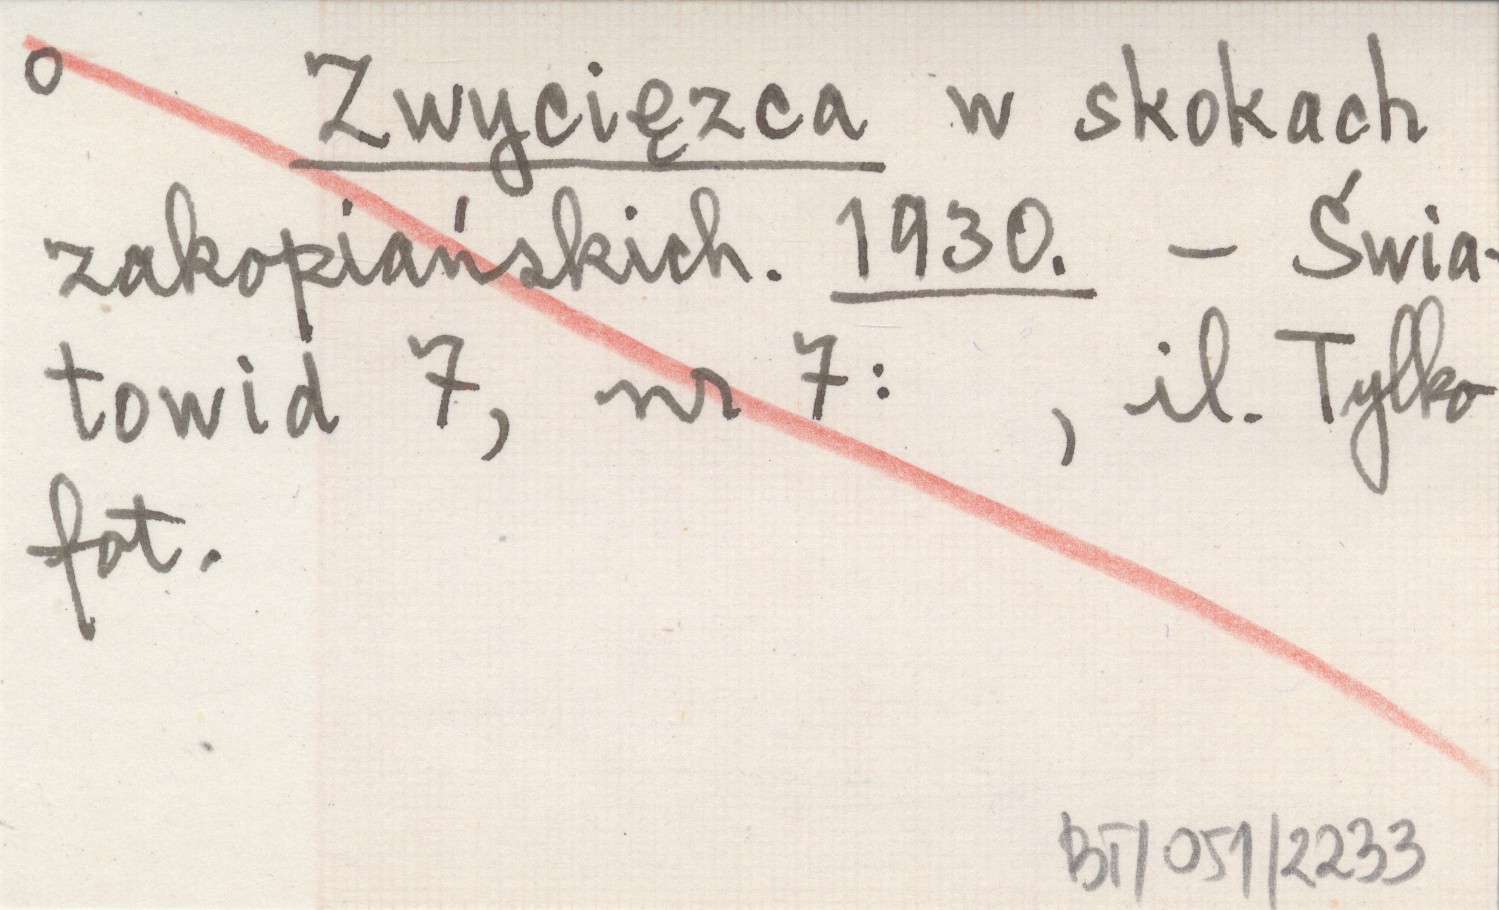 o Zwycięzca w skokach
zakopiańskich. 1930. – Świa-
towid 7, nr 7:   , il. Tylko
fot.
BT/051/2233